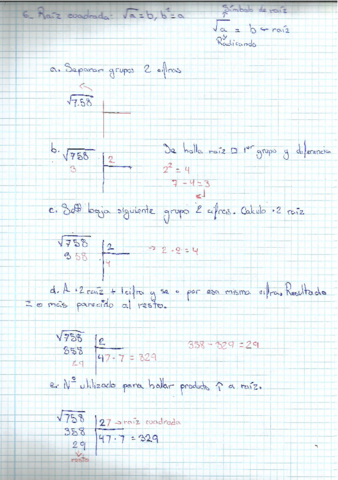 6. Raíz cuadrada: √a = b, b² = a
Símbolo de raíz
√a = b → raíz
Radicando
a. Separar grupos 2 cifras
√758
b. √758 2
3
Se halla raíz □ 1er grupo y diferencia
2² = 4
7 - 4 = 3
c. Se baja siguiente grupo 2 cifras. Calculo ·2 raíz
√758 2
358 4
→ 2·2 = 4
d. A ·2 raíz + 1 cifra y se × por esa misma cifra. Resultado
= o más parecido al resto.
√758 2
358 47·7 = 329
29
358 - 329 = 29
e. Nº utilizado para hallar producto ↑ a raíz.
√758 27 → raíz cuadrada
358 47·7 = 329
29
resto